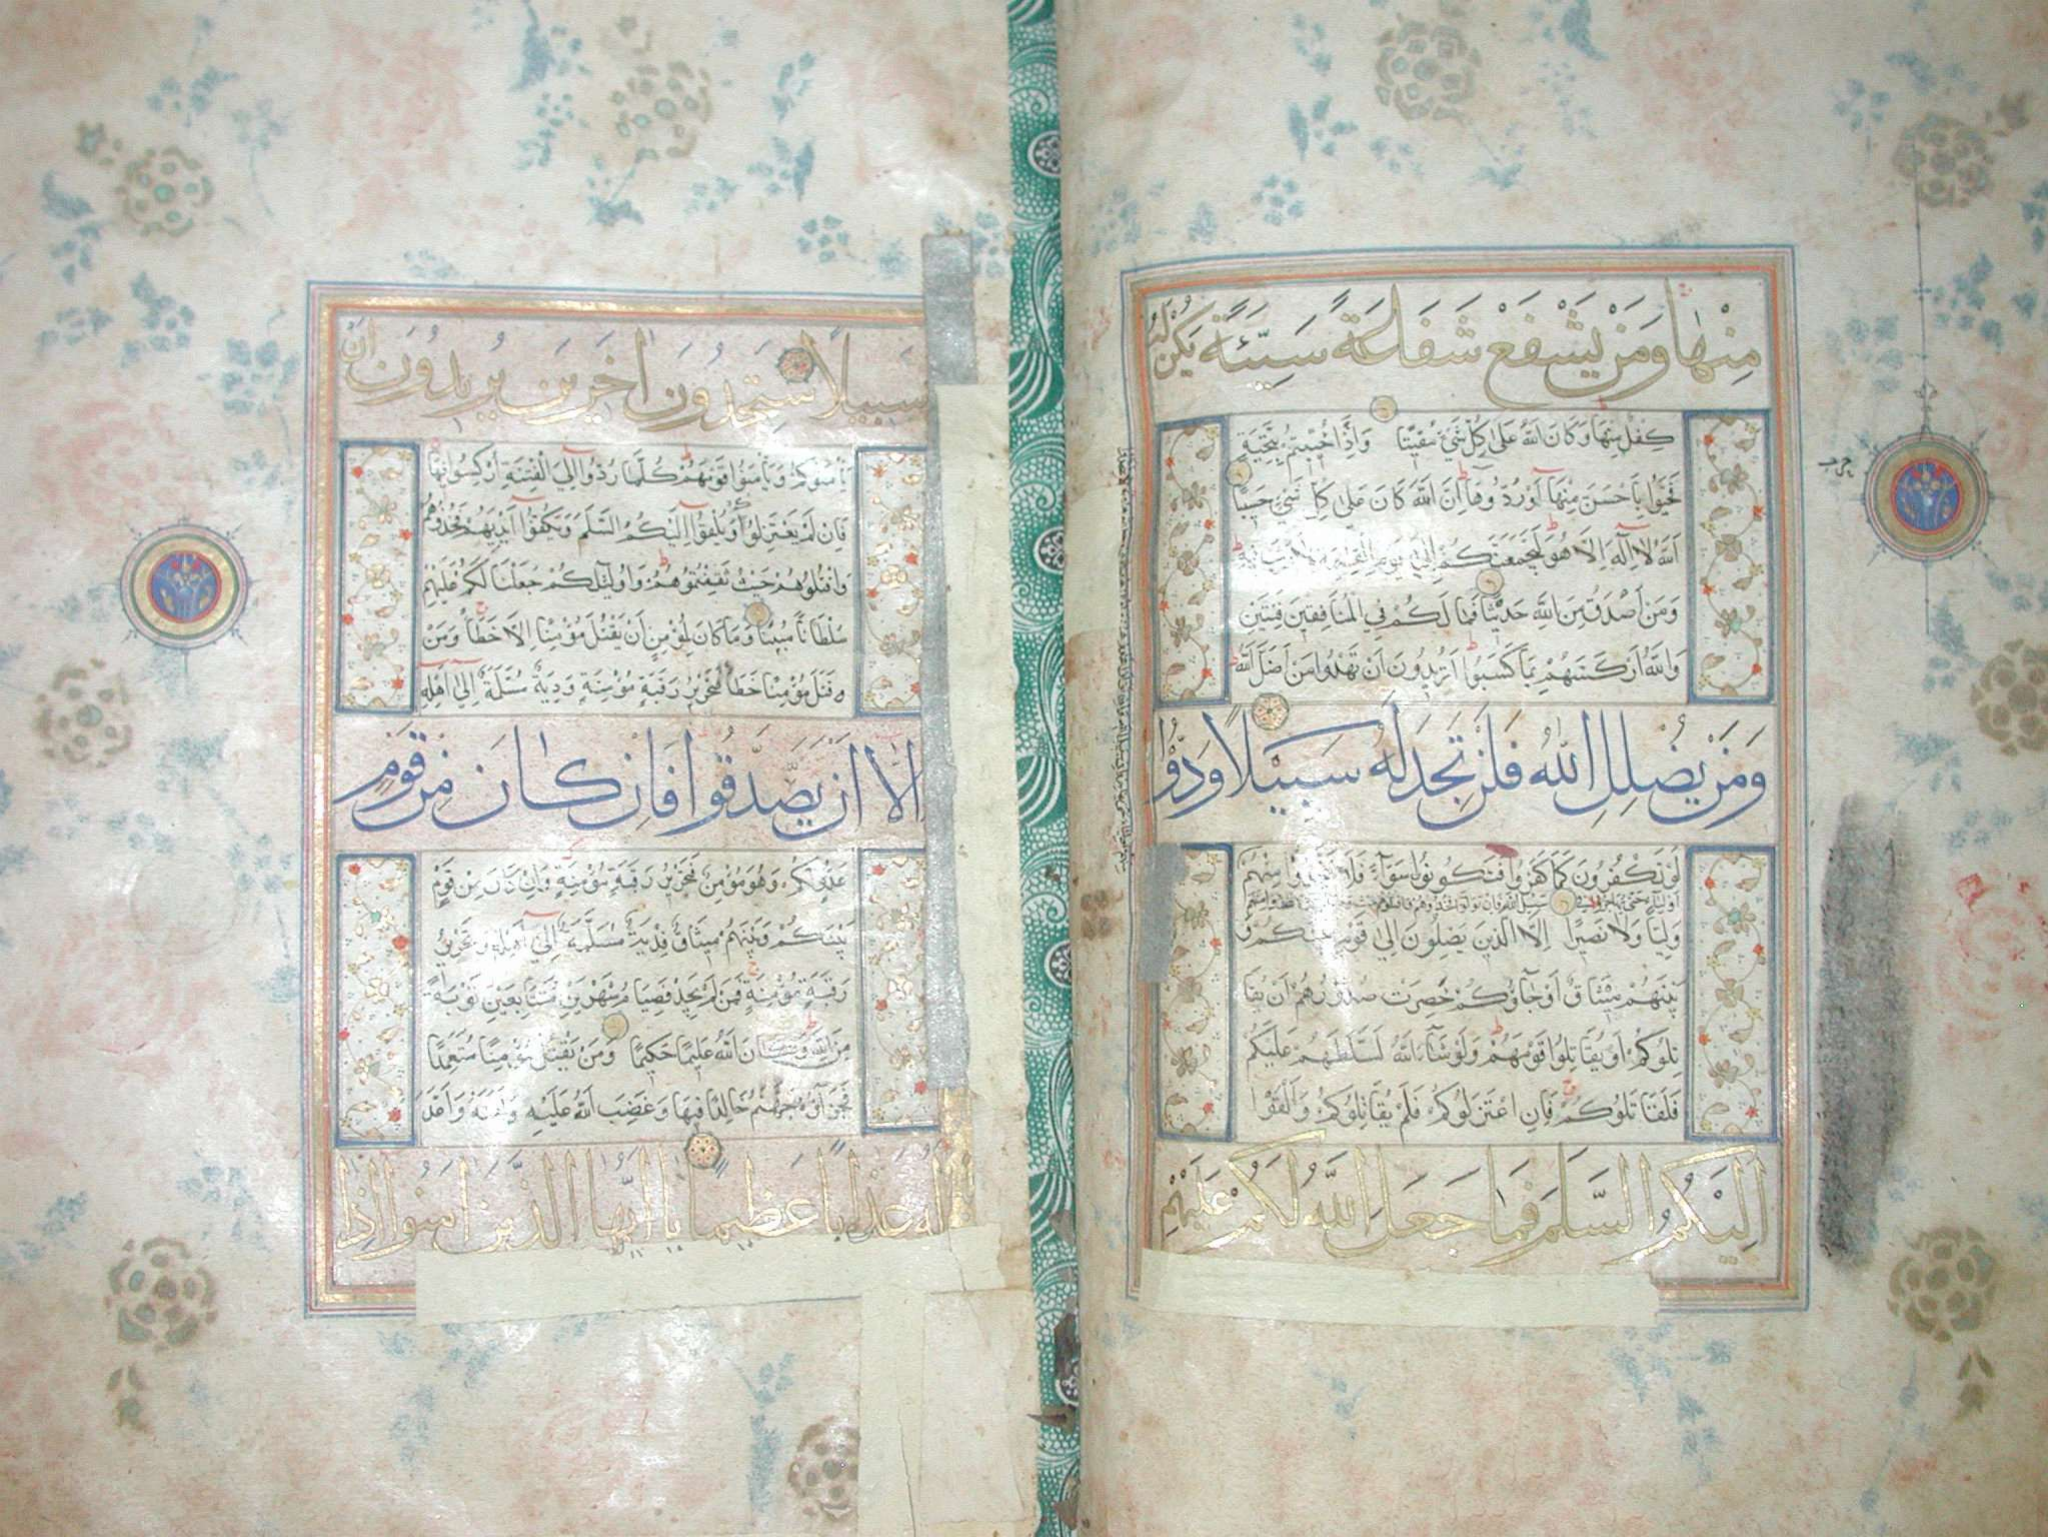 مِنْهَا وَمَنْ يَشْفَعْ شَفَاعَةً سَيِّئَةً يَكُنْ لَهُ
كِفْلٌ مِنْهَا وَكَانَ اللّٰهُ عَلٰى كُلِّ شَيْءٍ مُقِيتًا وَاِذَا حُيِّيتُمْ بِتَحِيَّةٍ
فَحَيُّوا بِاَحْسَنَ مِنْهَا اَوْ رُدُّوهَا اِنَّ اللّٰهَ كَانَ عَلٰى كُلِّ شَيْءٍ حَسِيبًا
اَللّٰهُ لَا اِلٰهَ اِلَّا هُوَ لَيَجْمَعَنَّكُمْ اِلٰى يَوْمِ الْقِيٰمَةِ لَا رَيْبَ فِيهِ
وَمَنْ اَصْدَقُ مِنَ اللّٰهِ حَدِيثًا فَمَا لَكُمْ فِي الْمُنَافِقِينَ فِئَتَيْنِ
وَاللّٰهُ اَرْكَسَهُمْ بِمَا كَسَبُوا اَتُرِيدُونَ اَنْ تَهْدُوا مَنْ اَضَلَّ اللّٰهُ
وَمَنْ يُضْلِلِ اللّٰهُ فَلَنْ تَجِدَ لَهُ سَبِيلًا وَدُّوا
لَوْ تَكْفُرُونَ كَمَا كَفَرُوا فَتَكُونُونَ سَوَاءً فَلَا تَتَّخِذُوا مِنْهُمْ
اَوْلِيَاءَ حَتّٰى يُهَاجِرُوا فِي سَبِيلِ اللّٰهِ فَاِنْ تَوَلَّوْا فَخُذُوهُمْ
وَلِيًّا وَلَا نَصِيرًا اِلَّا الَّذِينَ يَصِلُونَ اِلٰى قَوْمٍ بَيْنَكُمْ وَ
بَيْنَهُمْ مِيثَاقٌ اَوْ جَاؤُكُمْ حَصِرَتْ صُدُورُهُمْ اَنْ يُقَا
تِلُوكُمْ اَوْ يُقَاتِلُوا قَوْمَهُمْ وَلَوْ شَاءَ اللّٰهُ لَسَلَّطَهُمْ عَلَيْكُمْ
فَلَقَاتَلُوكُمْ فَاِنِ اعْتَزَلُوكُمْ فَلَمْ يُقَاتِلُوكُمْ وَاَلْقَوْا
اِلَيْكُمُ السَّلَمَ فَمَا جَعَلَ اللّٰهُ لَكُمْ عَلَيْهِمْ
سَبِيلًا سَتَجِدُونَ اٰخَرِينَ يُرِيدُونَ اَنْ
يَاْمَنُوكُمْ وَيَاْمَنُوا قَوْمَهُمْ كُلَّمَا رُدُّوا اِلَى الْفِتْنَةِ اُرْكِسُوا فِيهَا
فَاِنْ لَمْ يَعْتَزِلُوكُمْ وَيُلْقُوا اِلَيْكُمُ السَّلَمَ وَيَكُفُّوا اَيْدِيَهُمْ فَخُذُوهُمْ
وَاقْتُلُوهُمْ حَيْثُ ثَقِفْتُمُوهُمْ وَاُولٰئِكُمْ جَعَلْنَا لَكُمْ عَلَيْهِمْ
سُلْطَانًا مُبِينًا وَمَا كَانَ لِمُؤْمِنٍ اَنْ يَقْتُلَ مُؤْمِنًا اِلَّا خَطَأً وَمَنْ
قَتَلَ مُؤْمِنًا خَطَأً فَتَحْرِيرُ رَقَبَةٍ مُؤْمِنَةٍ وَدِيَةٌ مُسَلَّمَةٌ اِلٰى اَهْلِهِ
اِلَّا اَنْ يَصَّدَّقُوا فَاِنْ كَانَ مِنْ قَوْمٍ
عَدُوٍّ لَكُمْ وَهُوَ مُؤْمِنٌ فَتَحْرِيرُ رَقَبَةٍ مُؤْمِنَةٍ وَاِنْ كَانَ مِنْ قَوْمٍ
بَيْنَكُمْ وَبَيْنَهُمْ مِيثَاقٌ فَدِيَةٌ مُسَلَّمَةٌ اِلٰى اَهْلِهِ وَتَحْرِيرُ
رَقَبَةٍ مُؤْمِنَةٍ فَمَنْ لَمْ يَجِدْ فَصِيَامُ شَهْرَيْنِ مُتَتَابِعَيْنِ تَوْبَةً
مِنَ اللّٰهِ وَكَانَ اللّٰهُ عَلِيمًا حَكِيمًا وَمَنْ يَقْتُلْ مُؤْمِنًا مُتَعَمِّدًا
فَجَزَاؤُهُ جَهَنَّمُ خَالِدًا فِيهَا وَغَضِبَ اللّٰهُ عَلَيْهِ وَلَعَنَهُ وَاَعَدَّ
لَهُ عَذَابًا عَظِيمًا يَا اَيُّهَا الَّذِينَ اٰمَنُوا اِذَا